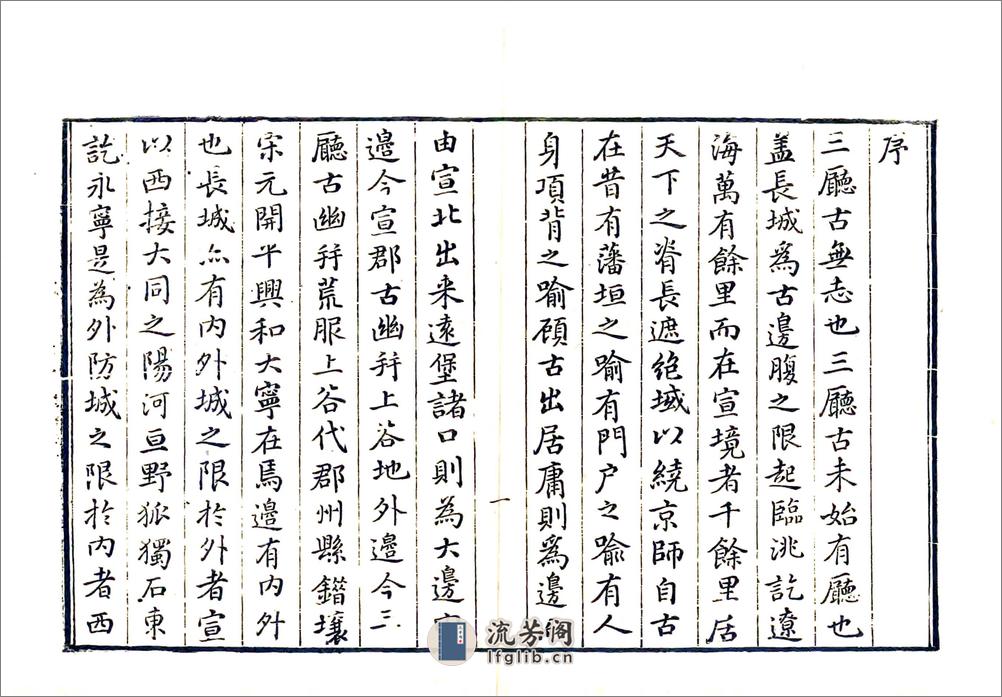 序
三廳古無志也三廳古未始有廳也
盖長城爲古邊腹之限起臨洮訖遼
海萬有餘里而在宣境者千餘里居
天下之脊長遮絶域以繞京師自古
在昔有藩垣之喻有門户之喻有人
身項背之喻顧古出居庸則爲邊
一
由宣北出来遠堡諸口則為大邊
邊今宣郡古幽并上谷地外邊今三
廳古幽并荒服上谷代郡州縣錯壤
宋元開平興和大寧在焉邊有内外
也長城亦有内外城之限於外者宣
以西接大同之陽河亘野狐獨石東
訖永寧是為外防城之限於内者西
流芳阁
lfglib.cn